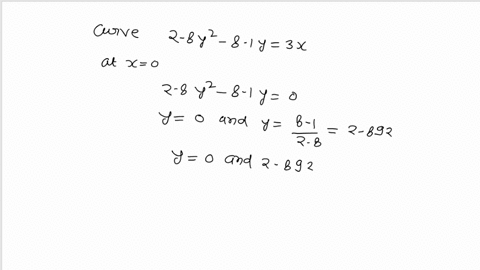 Curve 2-8y² - 8-1y = 3x
at x=0
2-8y² - 8-1y = 0
y = 0 and y = 8-1/2-8 = 2-892
y = 0 and 2-892